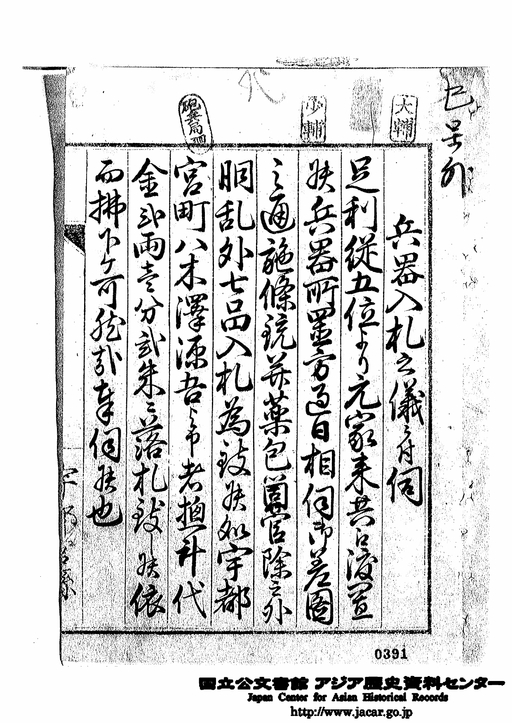 大輔
少輔
兵器入札之儀ニ付伺
足利従五位より元家来共江渡置
候兵器所置方過日相伺御差圖
之通施條銃并薬包蘭官除之外
胴乱外七品入札為致候処宇都
宮町八木澤源吾与申者惣斗代
金弐両壱分弐朱ニ落札致し候依
而拂下ケ可然哉奉伺候也
0391
国立公文書館 アジア歴史資料センター
Japan Center for Asian Historical Records
http://www.jacar.go.jp